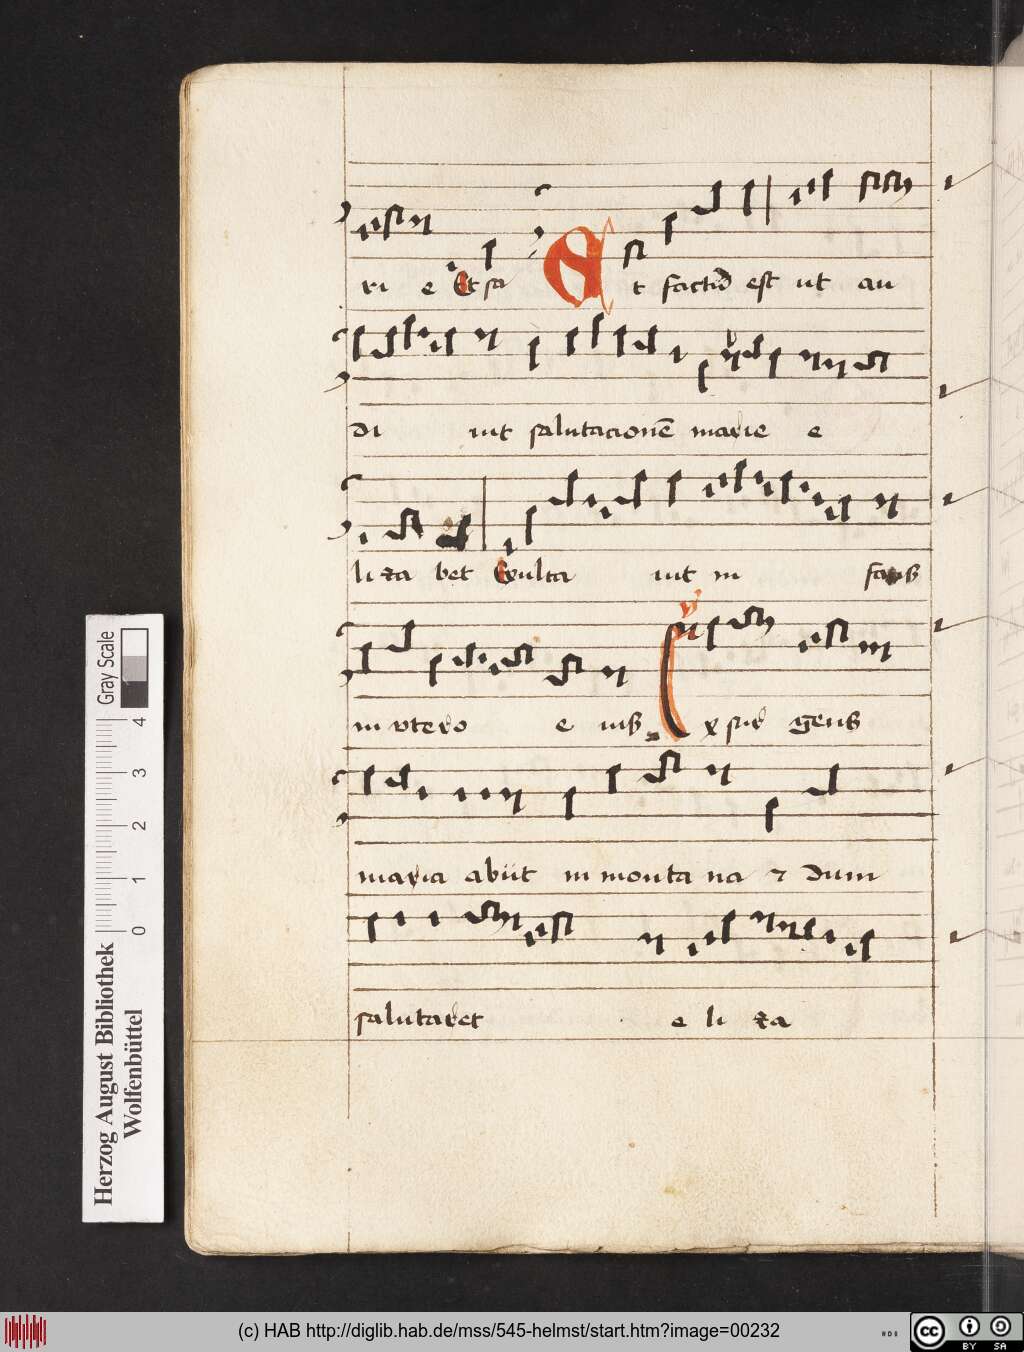 ri e Et sa Et factū est ut au
di uit salutacionē marie e
li za bet Exulta uit in fans
in vtero e ius ℣ Ex sur gens
maria abiit in monta na ⁊ dum
salutaret e li za
Gray Scale
0 1 2 3 4
Herzog August Bibliothek
Wolfenbüttel
(c) HAB http://diglib.hab.de/mss/545-helmst/start.htm?image=00232
cc BY SA